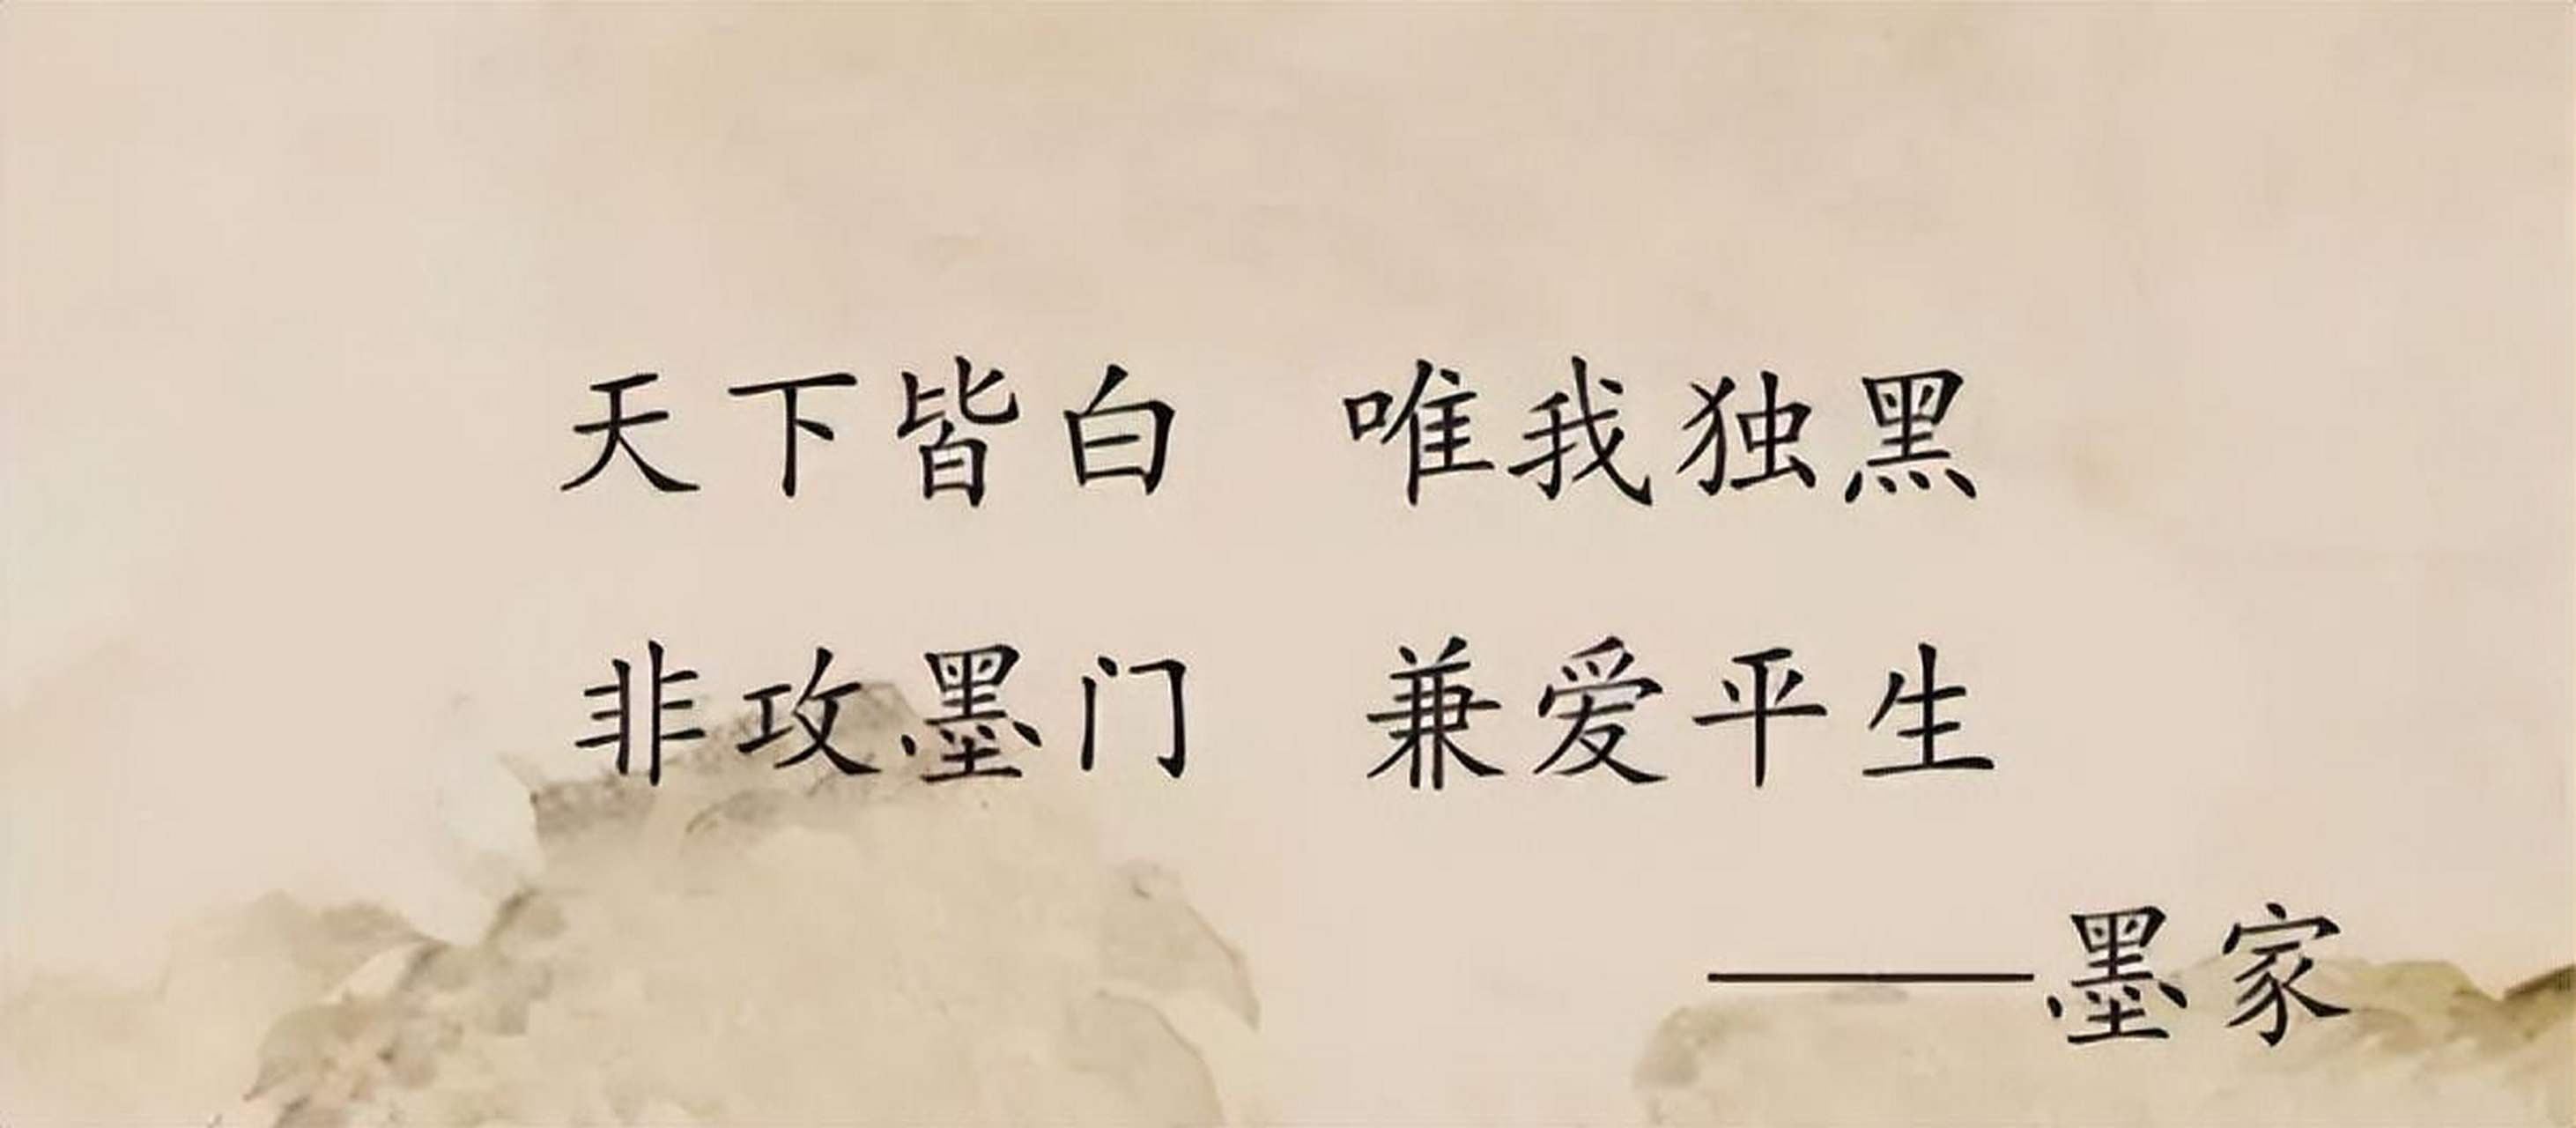 天下皆白 唯我独黑
非攻墨门 兼爱平生
——墨家